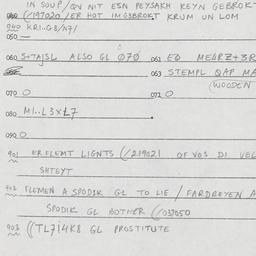 IN SOUP / QN NIT ESN PEYSAKH KEYN GEBROK
(/197020 / ER HOT IMGƏBROKT KRUM UN LOM
040 KRI..G8/N7/
050 —
060 S+TAJSL ALSO GL 070 061 EQ MEGRZ+3R
063 STEMPL QAP MA
(WOODEN
070 0 072 0
080 M1..L3XL7
090 0
901 ERFLEMT LIGNTS (/219021 OF VOS DI VEL
SHTEYT
902 FLEMEN A SPODIK GL TO LIE / FARDREYEN A
SPODIK GL BOTHER (/037050
903 ((TL714K8 GL PROSTITUTE